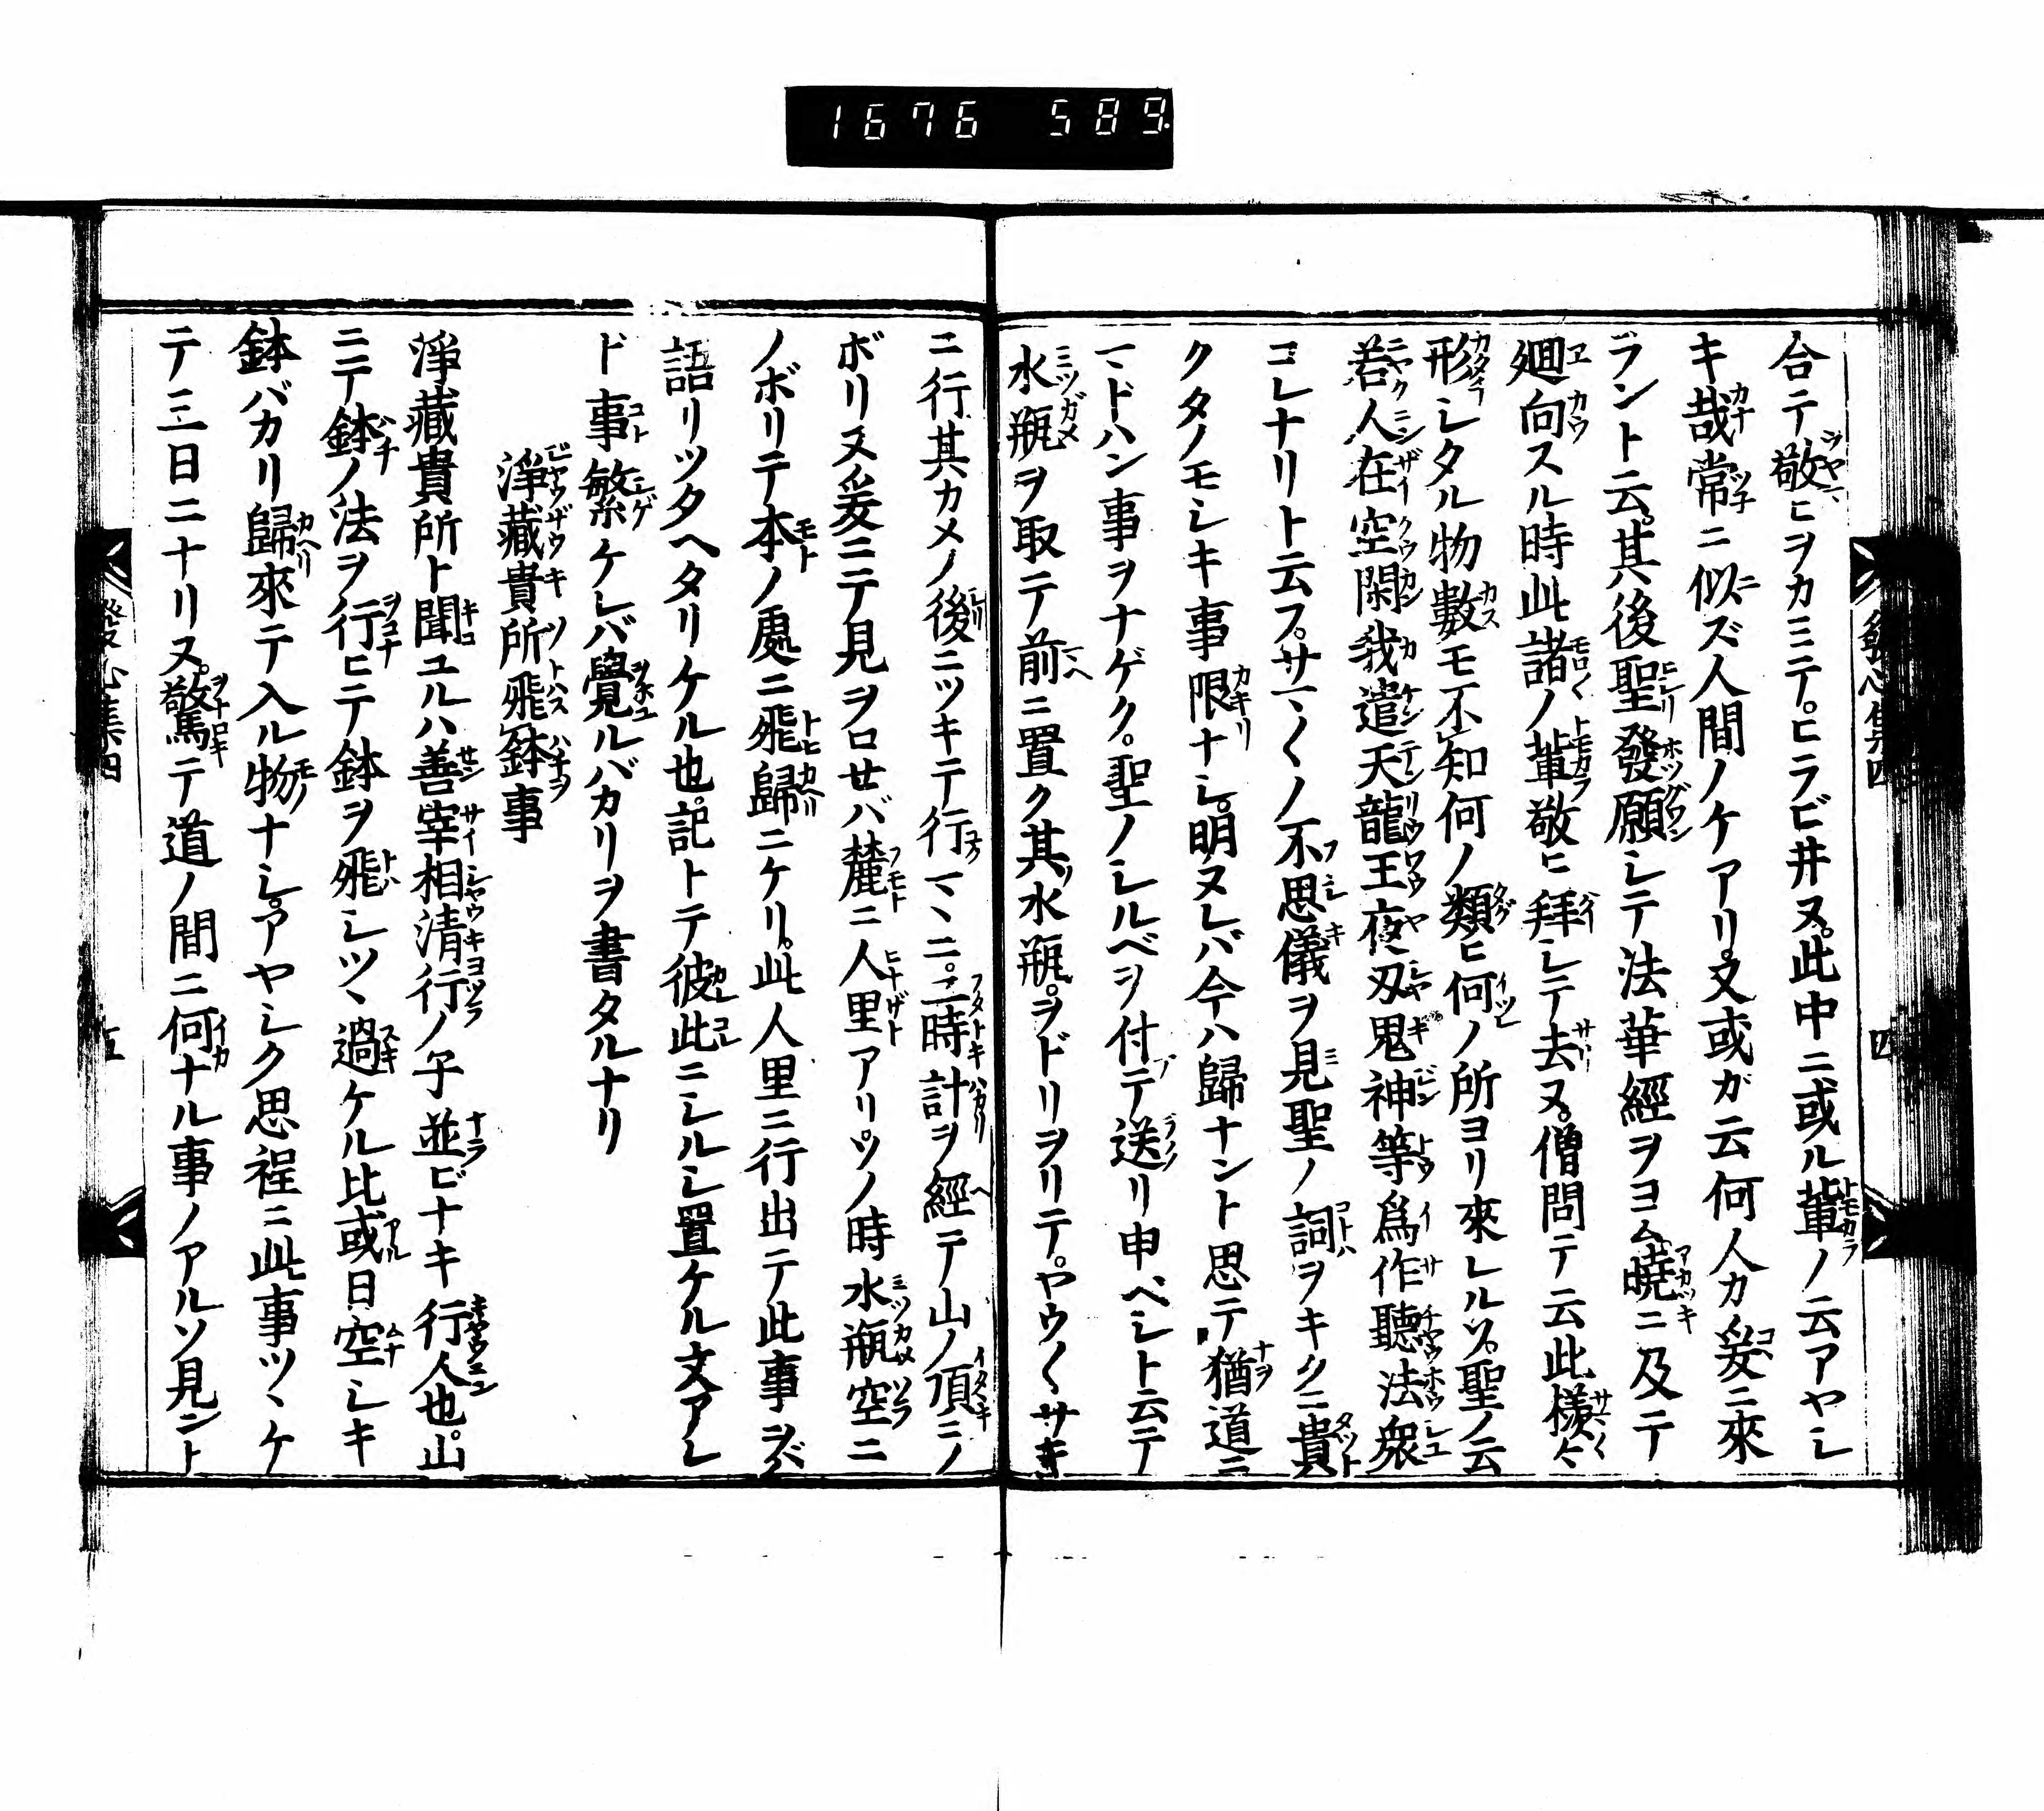 1676 589.
合テ敬ヒヲカミテ。ヒラビ井ヌ。此中ニ或ル輩ノ云アヤシ
キ哉常ニ似ズ人間ノケアリ。又或ガ云何人カ爰ニ來
ラント云。其後聖發願シテ法華經ヲヨム曉ニ及テ
廻向スル時此諸ノ輩敬ヒ拜シテ去ヌ。僧問テ云此様々
形シタル物數モ不知何ノ類ヒ何ノ所ヨリ來レルソ。聖ノ云
若人在空閑我遣天龍王夜叉鬼神等爲作聽法衆
コレナリト云フ。サマ〱ノ不思儀ヲ見聖ノ詞ヲキクニ貴
クタノモシキ事限ナシ。明ヌレバ今ハ歸ナント思テ猶道ニ
マドハン事ヲナゲク。聖ノシルベヲ付テ送リ申ベシト云テ
水瓶ヲ取テ前ニ置ク其水瓶。ヲドリヲリテ。ヤウ〱サキ
ニ行其カメノ後ニツキテ行マヽニ。二時計ヲ經テ山ノ頂ニノ
ボリヌ爰ニテ見ヲロセバ麓ニ人里アリ。ソノ時水瓶空ニ
ノボリテ本ノ處ニ飛歸ニケリ。此人里ニ行出テ此事ヲバ
語リツタヘタリケル也。記トテ彼此ニシルシ置ケル文アレ
ド事繁ケレバ覺ルバカリヲ書タルナリ
淨藏貴所飛鉢事
淨藏貴所ト聞ユルハ善宰相清行ノ子並ビナキ行人也。山
ニテ鉢ノ法ヲ行ヒテ鉢ヲ飛シツヽ過ケル比或日空シキ
鉢バカリ歸來テ入ル物ナシ。アヤシク思程ニ此事ツヽケ
テ三日ニナリヌ。驚テ道ノ間ニ何ナル事ノアルソ見ント
發心集四
四